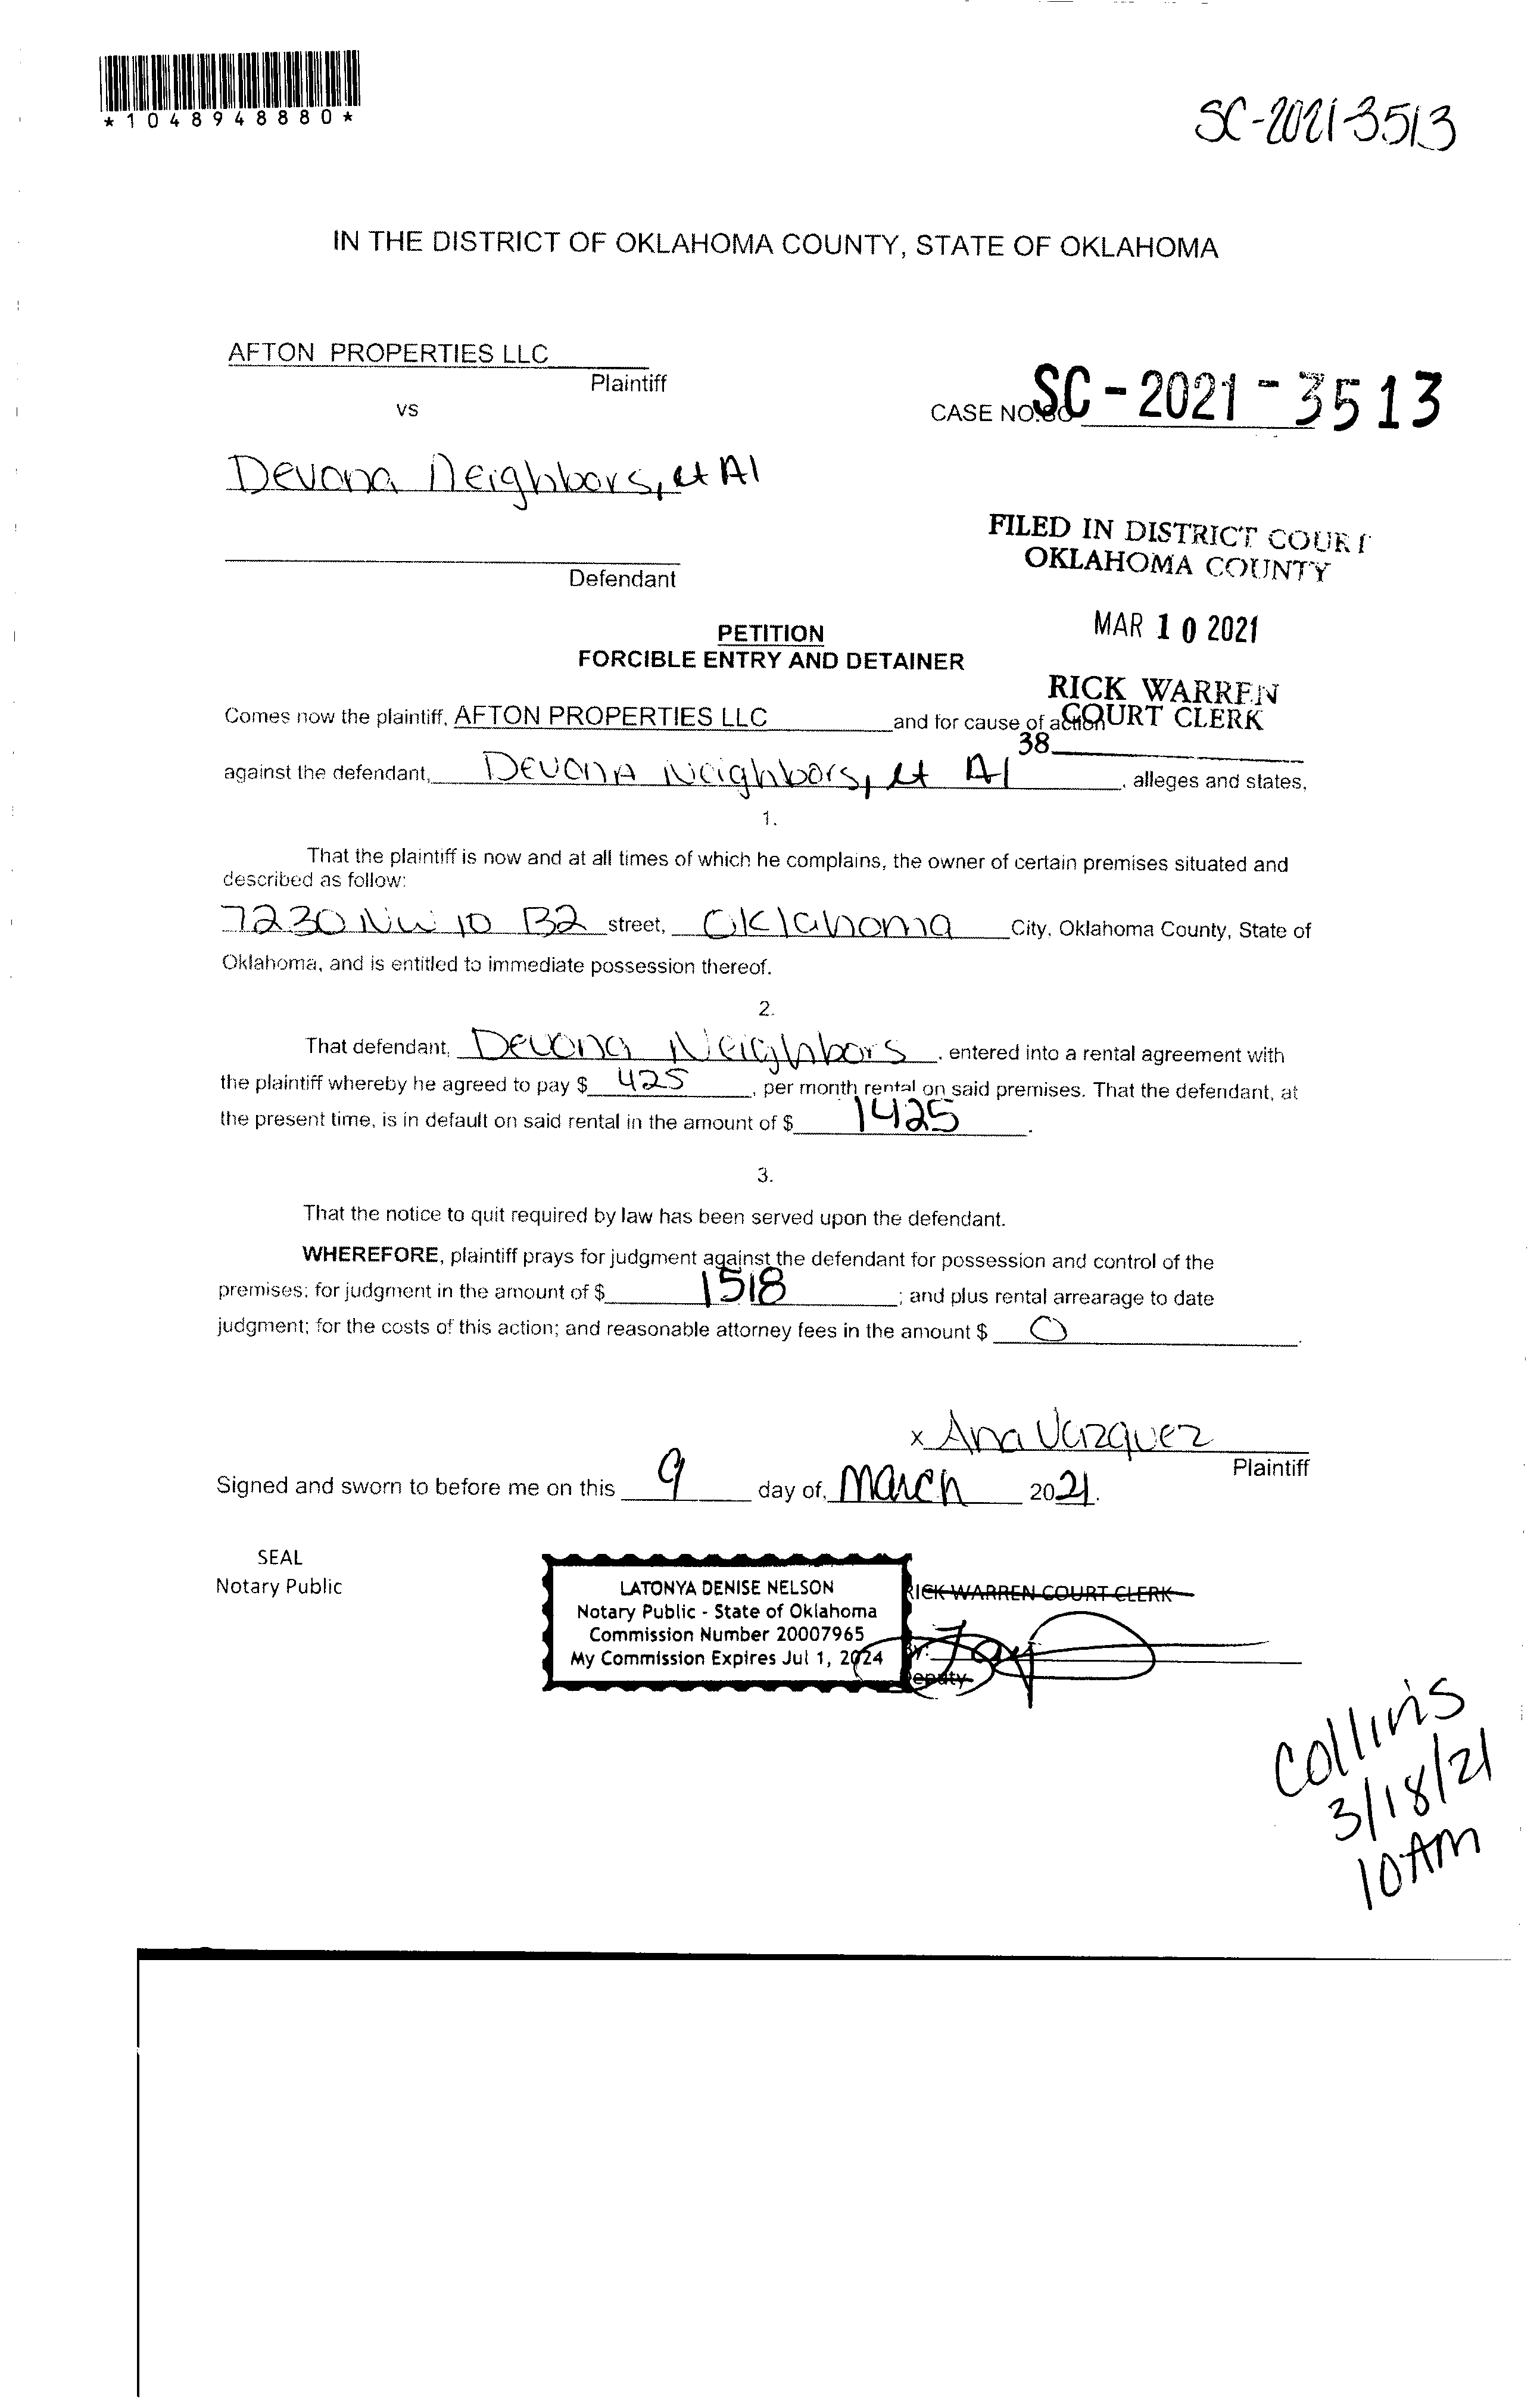 *1048948880*
SC-2021-3513
IN THE DISTRICT OF OKLAHOMA COUNTY, STATE OF OKLAHOMA
AFTON PROPERTIES LLC
Plaintiff
vs
CASE NO. SC-2021-3513
Devona Neighbors, et Al
FILED IN DISTRICT COURT
OKLAHOMA COUNTY
Defendant
MAR 10 2021
PETITION
FORCIBLE ENTRY AND DETAINER
RICK WARREN
COURT CLERK
Comes now the plaintiff, AFTON PROPERTIES LLC and for cause of action
38
against the defendant, Devona Neighbors, et Al, alleges and states,
1.
That the plaintiff is now and at all times of which he complains, the owner of certain premises situated and
described as follow:
7230 NW 10 B2 street, Oklahoma City, Oklahoma County, State of
Oklahoma, and is entitled to immediate possession thereof.
2.
That defendant, Devona Neighbors, entered into a rental agreement with
the plaintiff whereby he agreed to pay $ 425, per month rental on said premises. That the defendant, at
the present time, is in default on said rental in the amount of $ 1425.
3.
That the notice to quit required by law has been served upon the defendant.
WHEREFORE, plaintiff prays for judgment against the defendant for possession and control of the
premises; for judgment in the amount of $ 1518; and plus rental arrearage to date
judgment; for the costs of this action; and reasonable attorney fees in the amount $ 0.
x Ana Vazquez
Plaintiff
Signed and sworn to before me on this 9 day of, March 2021.
SEAL
Notary Public
LATONYA DENISE NELSON
Notary Public - State of Oklahoma
Commission Number 20007965
My Commission Expires Jul 1, 2024
RICK WARREN COURT CLERK
By:
Deputy
Collins
3/18/21
10AM